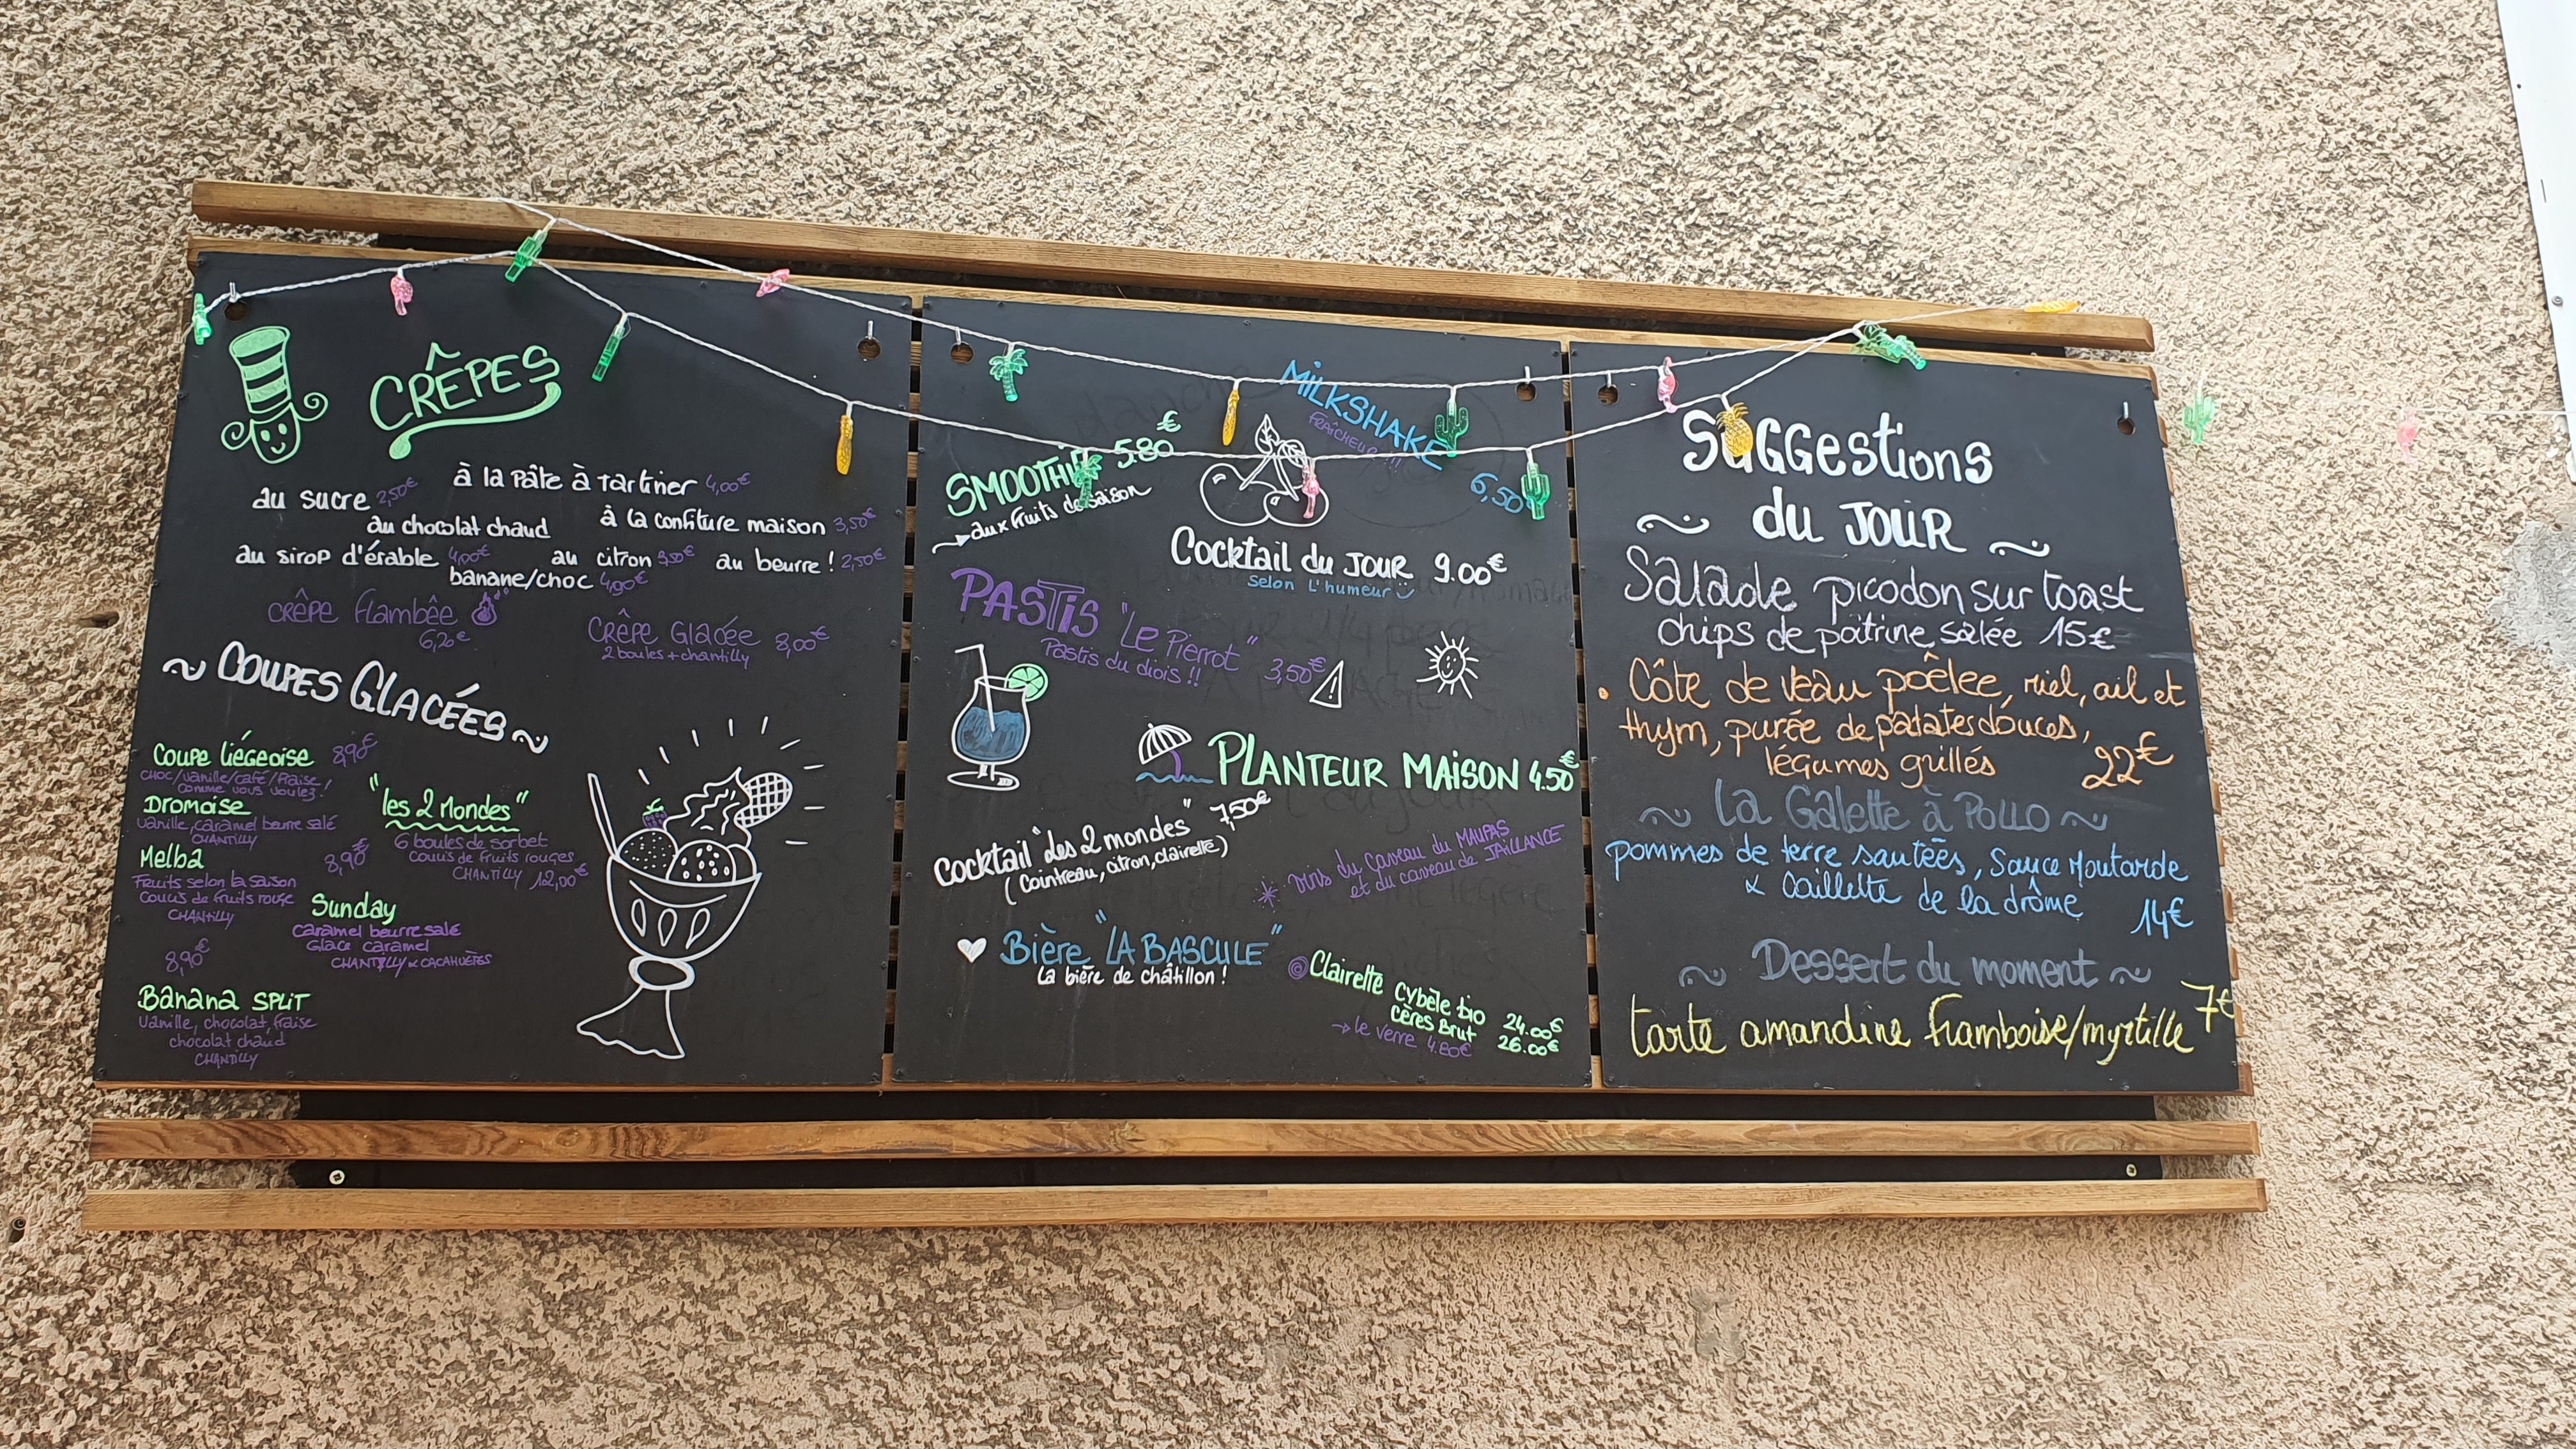 CRÊPES
à la pâte à tartiner 4,00€
au sucre 2,50€
au chocolat chaud
à la confiture maison 3,50€
au sirop d'érable 4,00€ au citron 3,50€ au beurre ! 2,50€
banane/choc 4,90€
CRÊPE flambêe
6,20€
CRÊPE Glacée 8,00€
2 boules + chantilly
~ COUPES GLACÉES ~
Coupe liégeoise 8,90€
CHOC/vanille/café/fraise
comme vous voulez !
Dromoise
vanille, caramel beurre salé
CHANTILLY
Melba 8,90€
Fruits selon la saison
Coulis de fruits rouge
CHANTILLY
8,90€
Banana SPLIT
Vanille, chocolat, fraise
chocolat chaud
CHANTILLY
"les 2 Mondes"
6 boules de sorbet
Coulis de fruits rouges
CHANTILLY 12,00€
Sunday
Caramel beurre salé
Glace caramel
CHANTILLY & CACAHUÈTES
SMOOTHIE 5.80€
aux fruits de saison
MILKSHAKE
FRAÎCHEUR !!!
6,50
Cocktail du JOUR 9.00€
Selon L'humeur
PASTIS "Le Pierrot" 3,50€
Pastis du diois !!
PLANTEUR MAISON 4.50€
Cocktail "des 2 mondes" 7,50€
(Cointreau, citron, clairette)
* vins du Caveau du MAUPAS
et du caveau de JAILLANCE
Bière "LA BASCULE"
La bière de châtillon !
Clairette Cybèle bio 24.00€
Cères Brut 26.00€
→ le verre 4.80€
Suggestions
~ du JOUR ~
Salade picodon sur toast
chips de poitrine salée 15€
. Côte de veau poêlee, miel, ail et
thym, purée de patates douces,
légumes grillés 22€
~ La Galette à POLLO ~
pommes de terre sautées, Sauce Moutarde
& Caillette de la drôme 14€
~ Dessert du moment ~
tarte amandine framboise/myrtille 7€